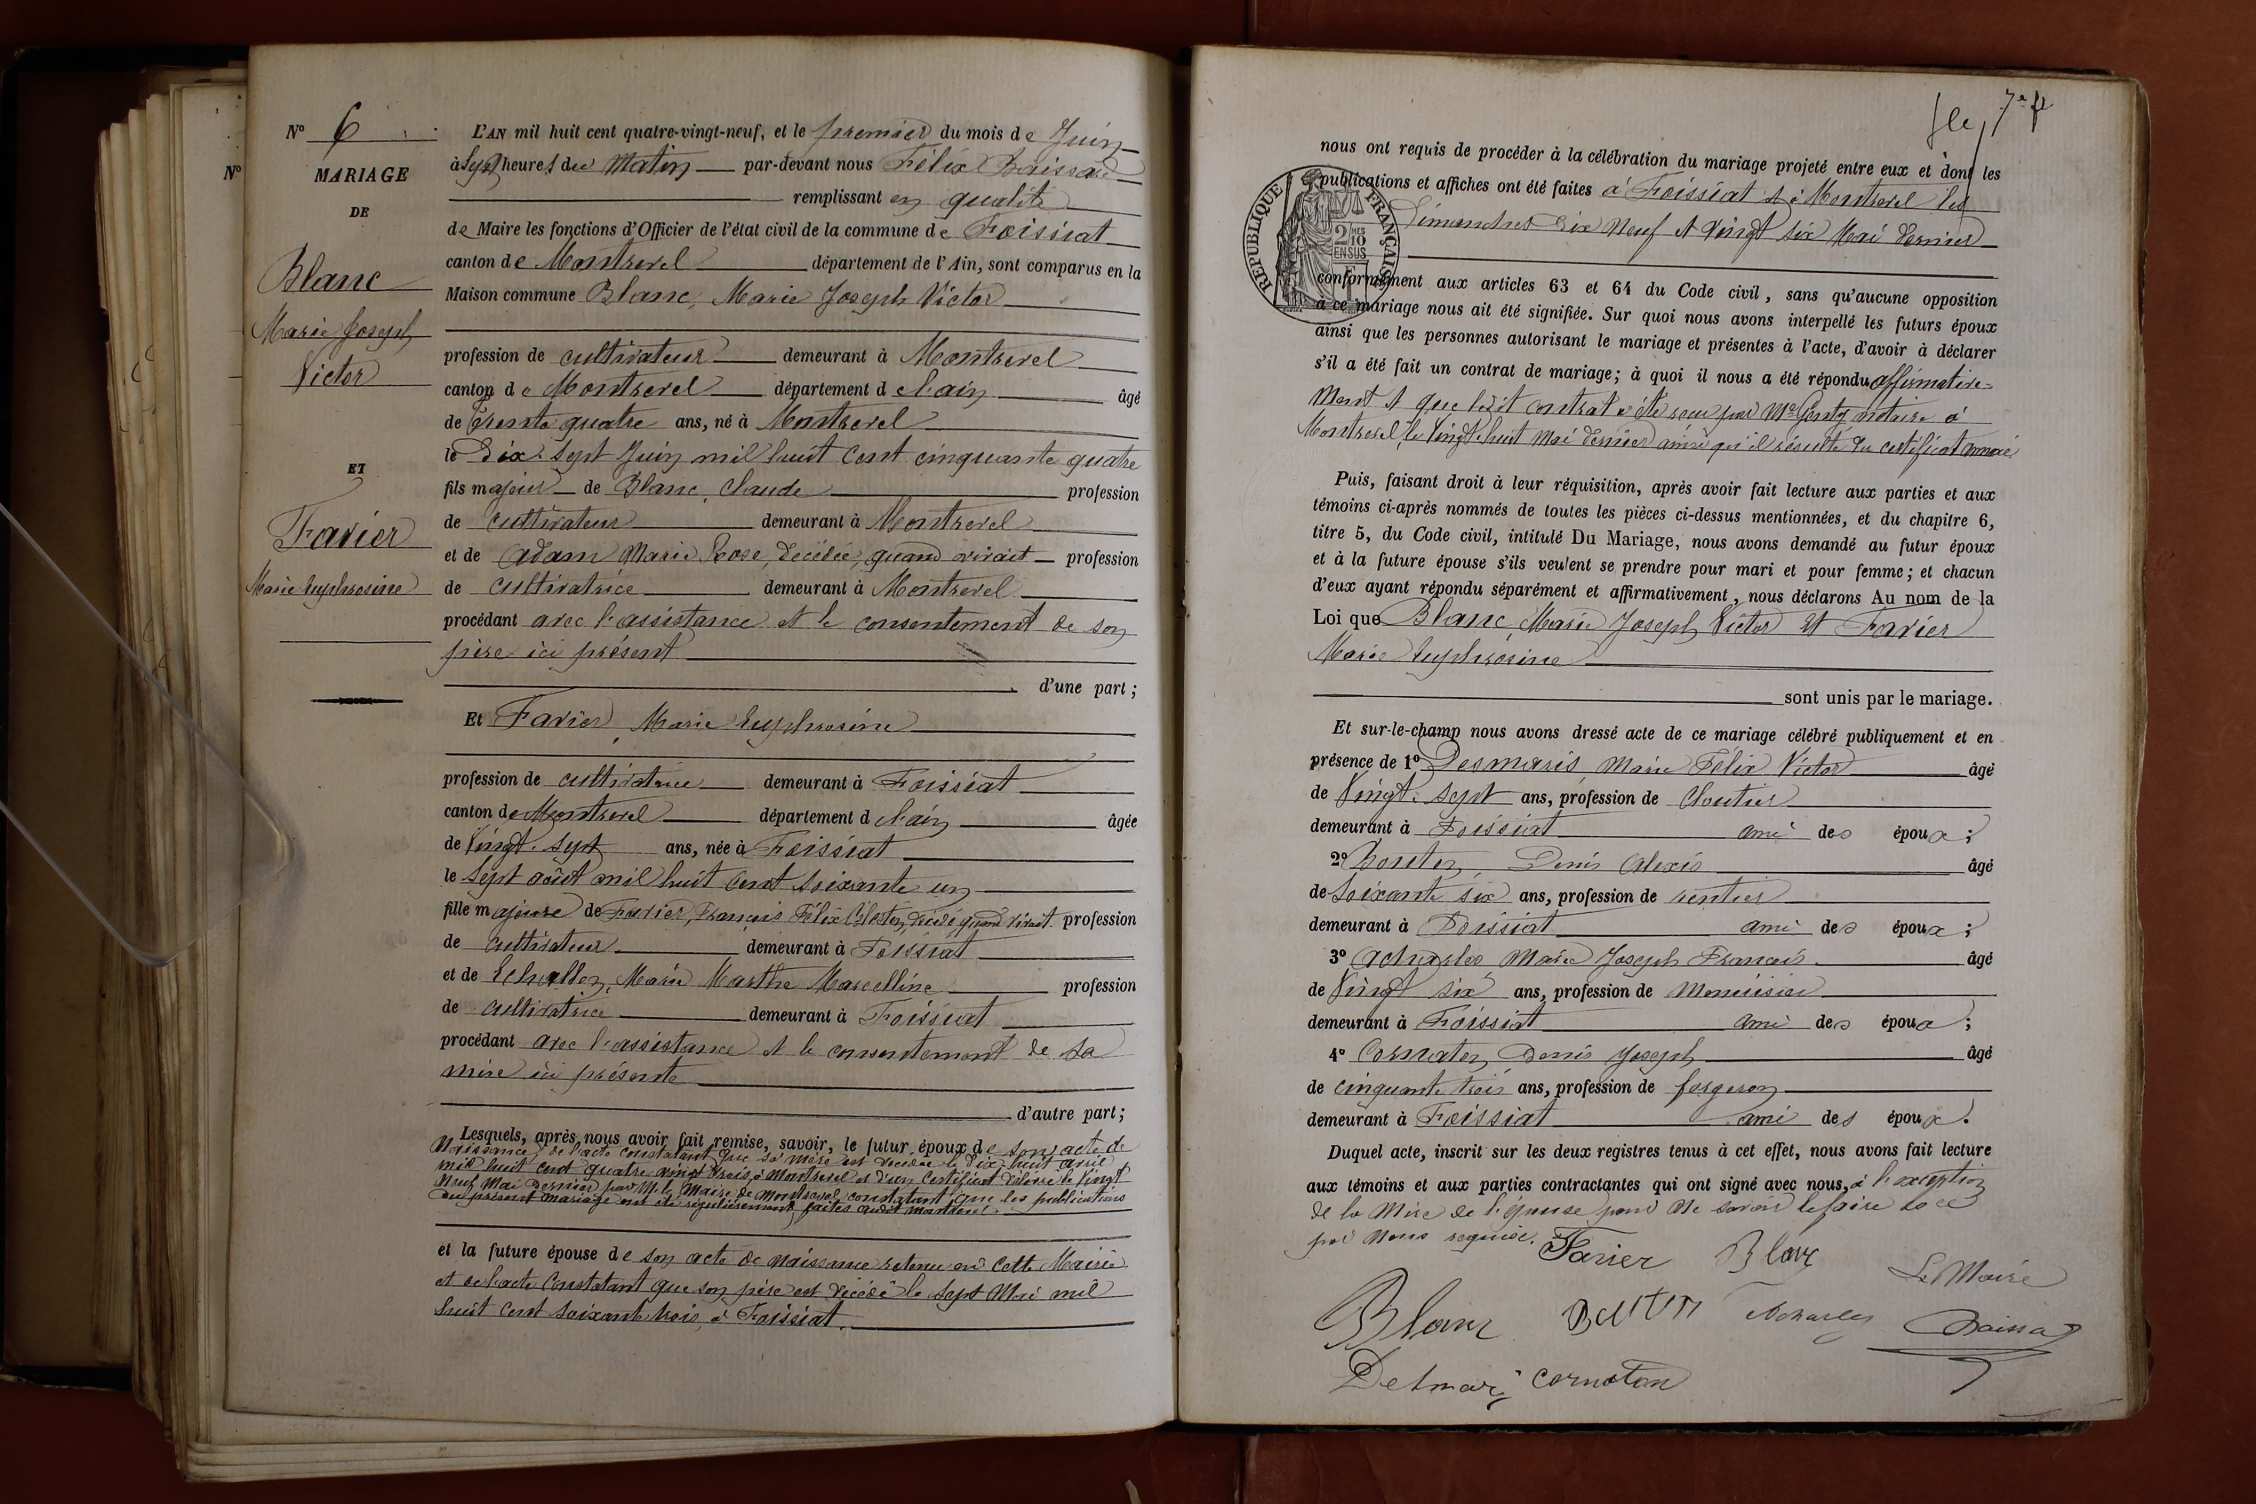 Nº 6
MARIAGE
DE
Blanc
Marie Joseph
Victor
ET
Favier
Marie Euphrosine
Nº
L'AN mil huit cent quatre-vingt-neuf, et le premier du mois de Juin
à Sept heures du Matin par-devant nous Félix Boissard
remplissant en qualité
de Maire les fonctions d'Officier de l'état civil de la commune de Foissiat
canton de Montrevel département de l'Ain, sont comparus en la
Maison commune Blanc, Marie Joseph Victor
profession de cultivateur demeurant à Montrevel
canton de Montrevel département d l'ain âgé
de Trente quatre ans, né à Montrevel
le Dix-Sept Juin mil huit cent cinquante quatre
fils majeur de Blanc, Claude profession
de cultivateur demeurant à Montrevel
et de Adam Marie Rose, décédée, quand vivait profession
de cultivatrice demeurant à Montrevel
procédant avec l'assistance et le consentement de son
père ici présent
d'une part;
Et Favier, Marie Euphrosine
profession de cultivatrice demeurant à Foissiat
canton de Montrevel département d l'ain âgée
de Vingt-Sept ans, née à Foissiat
le Sept août mil huit cent soixante un
fille majeure de Favier, François Félix Célestin, décédé quand vivait profession
de cultivateur demeurant à Foissiat
et de Echallon, Marie Marthe Marcelline profession
de cultivatrice demeurant à Foissiat
procédant avec l'assistance et le consentement de sa
mère ici présente
d'autre part;
Lesquels, après nous avoir fait remise, savoir, le futur époux de son acte de
Naissance, de l'acte constatant que sa mère est décédée le Dix-huit avril
mil huit cent quatre vingt trois, à Montrevel et d'un Certificat délivré le Vingt
Neuf Mai dernier par M. le Maire de Montrevel constatant que les publications
du présent mariage ont été régulièrement faites audit Montrevel.
et la future épouse de son acte de naissance retenu en cette Mairie
et de l'acte Constatant que son père est décédé le Sept Mai mil
huit cent soixante trois, à Foissiat.
7e f
nous ont requis de procéder à la célébration du mariage projeté entre eux et dont les
publications et affiches ont été faites à Foissiat et à Montrevel les
Dimanches Dix Neuf et Vingt Six Mai dernier
RÉPUBLIQUE FRANÇAISE
2/10 EN SUS
conformément aux articles 63 et 64 du Code civil, sans qu'aucune opposition
à ce mariage nous ait été signifiée. Sur quoi nous avons interpellé les futurs époux
ainsi que les personnes autorisant le mariage et présentes à l'acte, d'avoir à déclarer
s'il a été fait un contrat de mariage; à quoi il nous a été répondu affirmative-
ment et que ledit contrat a été reçu par Me Genty notaire à
Montrevel, le Vingt-huit Mai dernier ainsi qu'il résulte du certificat annexé
Puis, faisant droit à leur réquisition, après avoir fait lecture aux parties et aux
témoins ci-après nommés de toutes les pièces ci-dessus mentionnées, et du chapitre 6,
titre 5, du Code civil, intitulé Du Mariage, nous avons demandé au futur époux
et à la future épouse s'ils veulent se prendre pour mari et pour femme; et chacun
d'eux ayant répondu séparément et affirmativement, nous déclarons Au nom de la
Loi que Blanc, Marie Joseph Victor Et Favier
Marie Euphrosine
sont unis par le mariage.
Et sur-le-champ nous avons dressé acte de ce mariage célébré publiquement et en
présence de 1º Desmaris, Marie Félix Victor âgé
de Vingt-Sept ans, profession de Cloutier
demeurant à Foissiat ami des époux;
2º Bouton, Denis Alexis âgé
de Soixante Six ans, profession de rentier
demeurant à Foissiat ami des époux;
3º Acharles, Marie Joseph François âgé
de Vingt Six ans, profession de Menuisier
demeurant à Foissiat ami des époux;
4º Cornaton, Denis Joseph âgé
de cinquante trois ans, profession de forgeron
demeurant à Foissiat ami des époux.
Duquel acte, inscrit sur les deux registres tenus à cet effet, nous avons fait lecture
aux témoins et aux parties contractantes qui ont signé avec nous, à l'exception
de la Mère de l'épouse pour Ne savoir le faire de ce
par Nous requise.
Favier Blanc
Le Maire
Blanc Bouton Acharles Boissard
Desmaris Cornaton